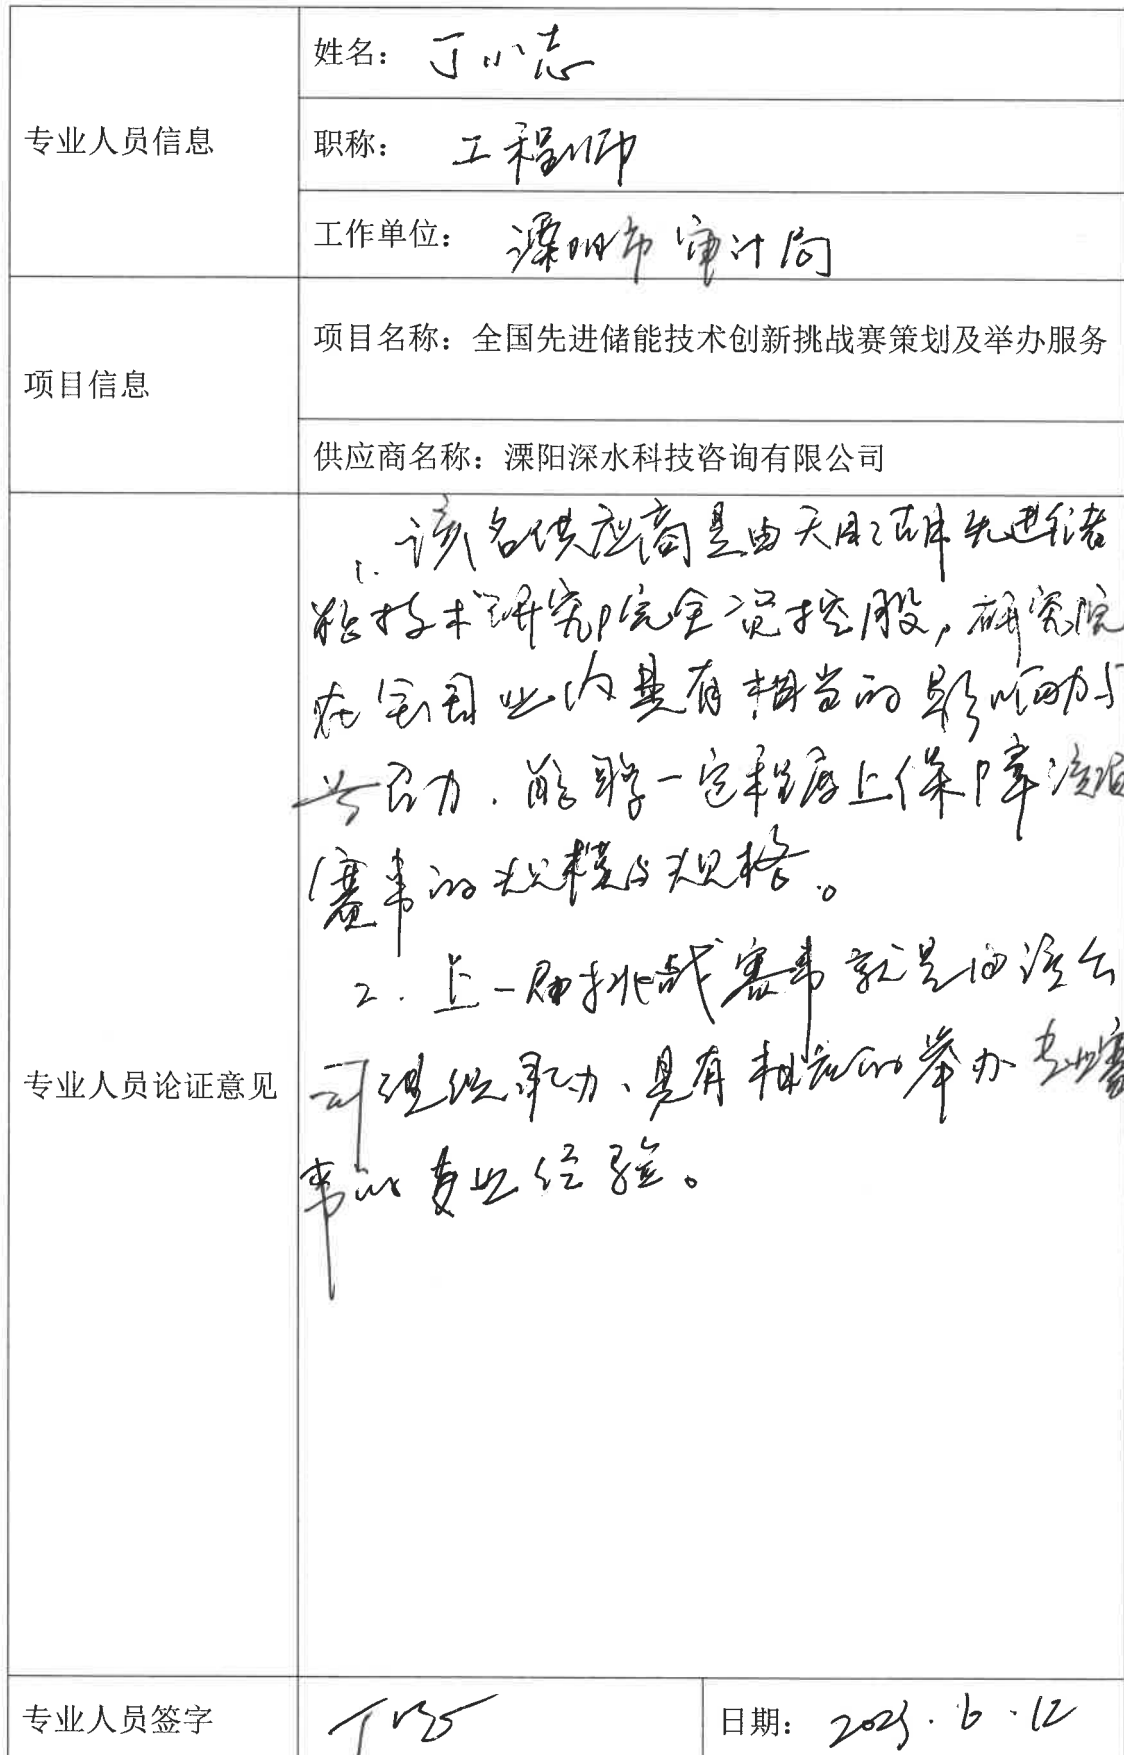 专业人员信息
姓名：丁小志
职称：工程师
工作单位：溧阳市审计局
项目信息
项目名称：全国先进储能技术创新挑战赛策划及举办服务
供应商名称：溧阳深水科技咨询有限公司
专业人员论证意见
1. 该名供应商是由天目湖先进储
能技术研究院全资控股，研究院
在全国业内具有相当的影响力与
号召力，能够一定程度上保障该项
赛事的规模与规格。
2. 上一届挑战赛事就是由该公
司组织承办、具有相应的举办专业赛
事的专业经验。
专业人员签字
日期：2023.6.12